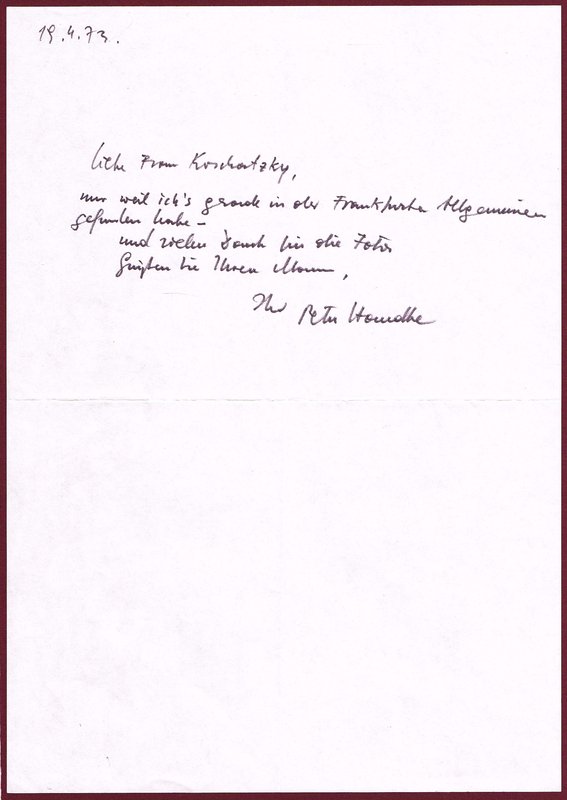 19.4.73.
liebe Frau Koschatzky,
nur weil ich's gerade in der Frankfurter Allgemeinen
gefunden habe –
und vielen Dank für die Fotos
Grüßen Sie Ihren Mann,
Ihr Peter Handke